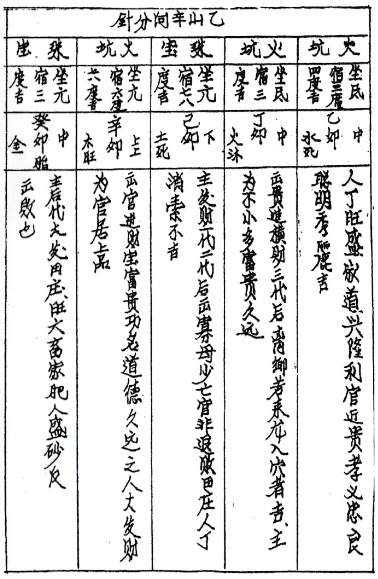 乙山辛向分針
火坑
坐氐
宿三度
四度吉
乙卯
中
水死
人丁旺盛家道兴隆利官近贵孝义忠良
聪明秀丽鹿吉
火坑
坐氐
宿三
度吉
丁卯
中
火沐
出贵进横财三代后离乡若来龙入穴者吉、主
为不小多富贵久远
珠宝
坐亢
宿七八
度吉
己卯
下
土死
主发财一代二代后出寡母少亡官非退败田庄人丁
消索不吉
火坑
坐亢
宿六度
六度吉
辛卯
上上
木旺
出官进财宝富贵功名道德久远之人大发财
为官居上品
珠宝
坐亢
宿三
度吉
癸卯
中
金胎
主后代大发田庄旺六畜家肥人盛砂反
出败也